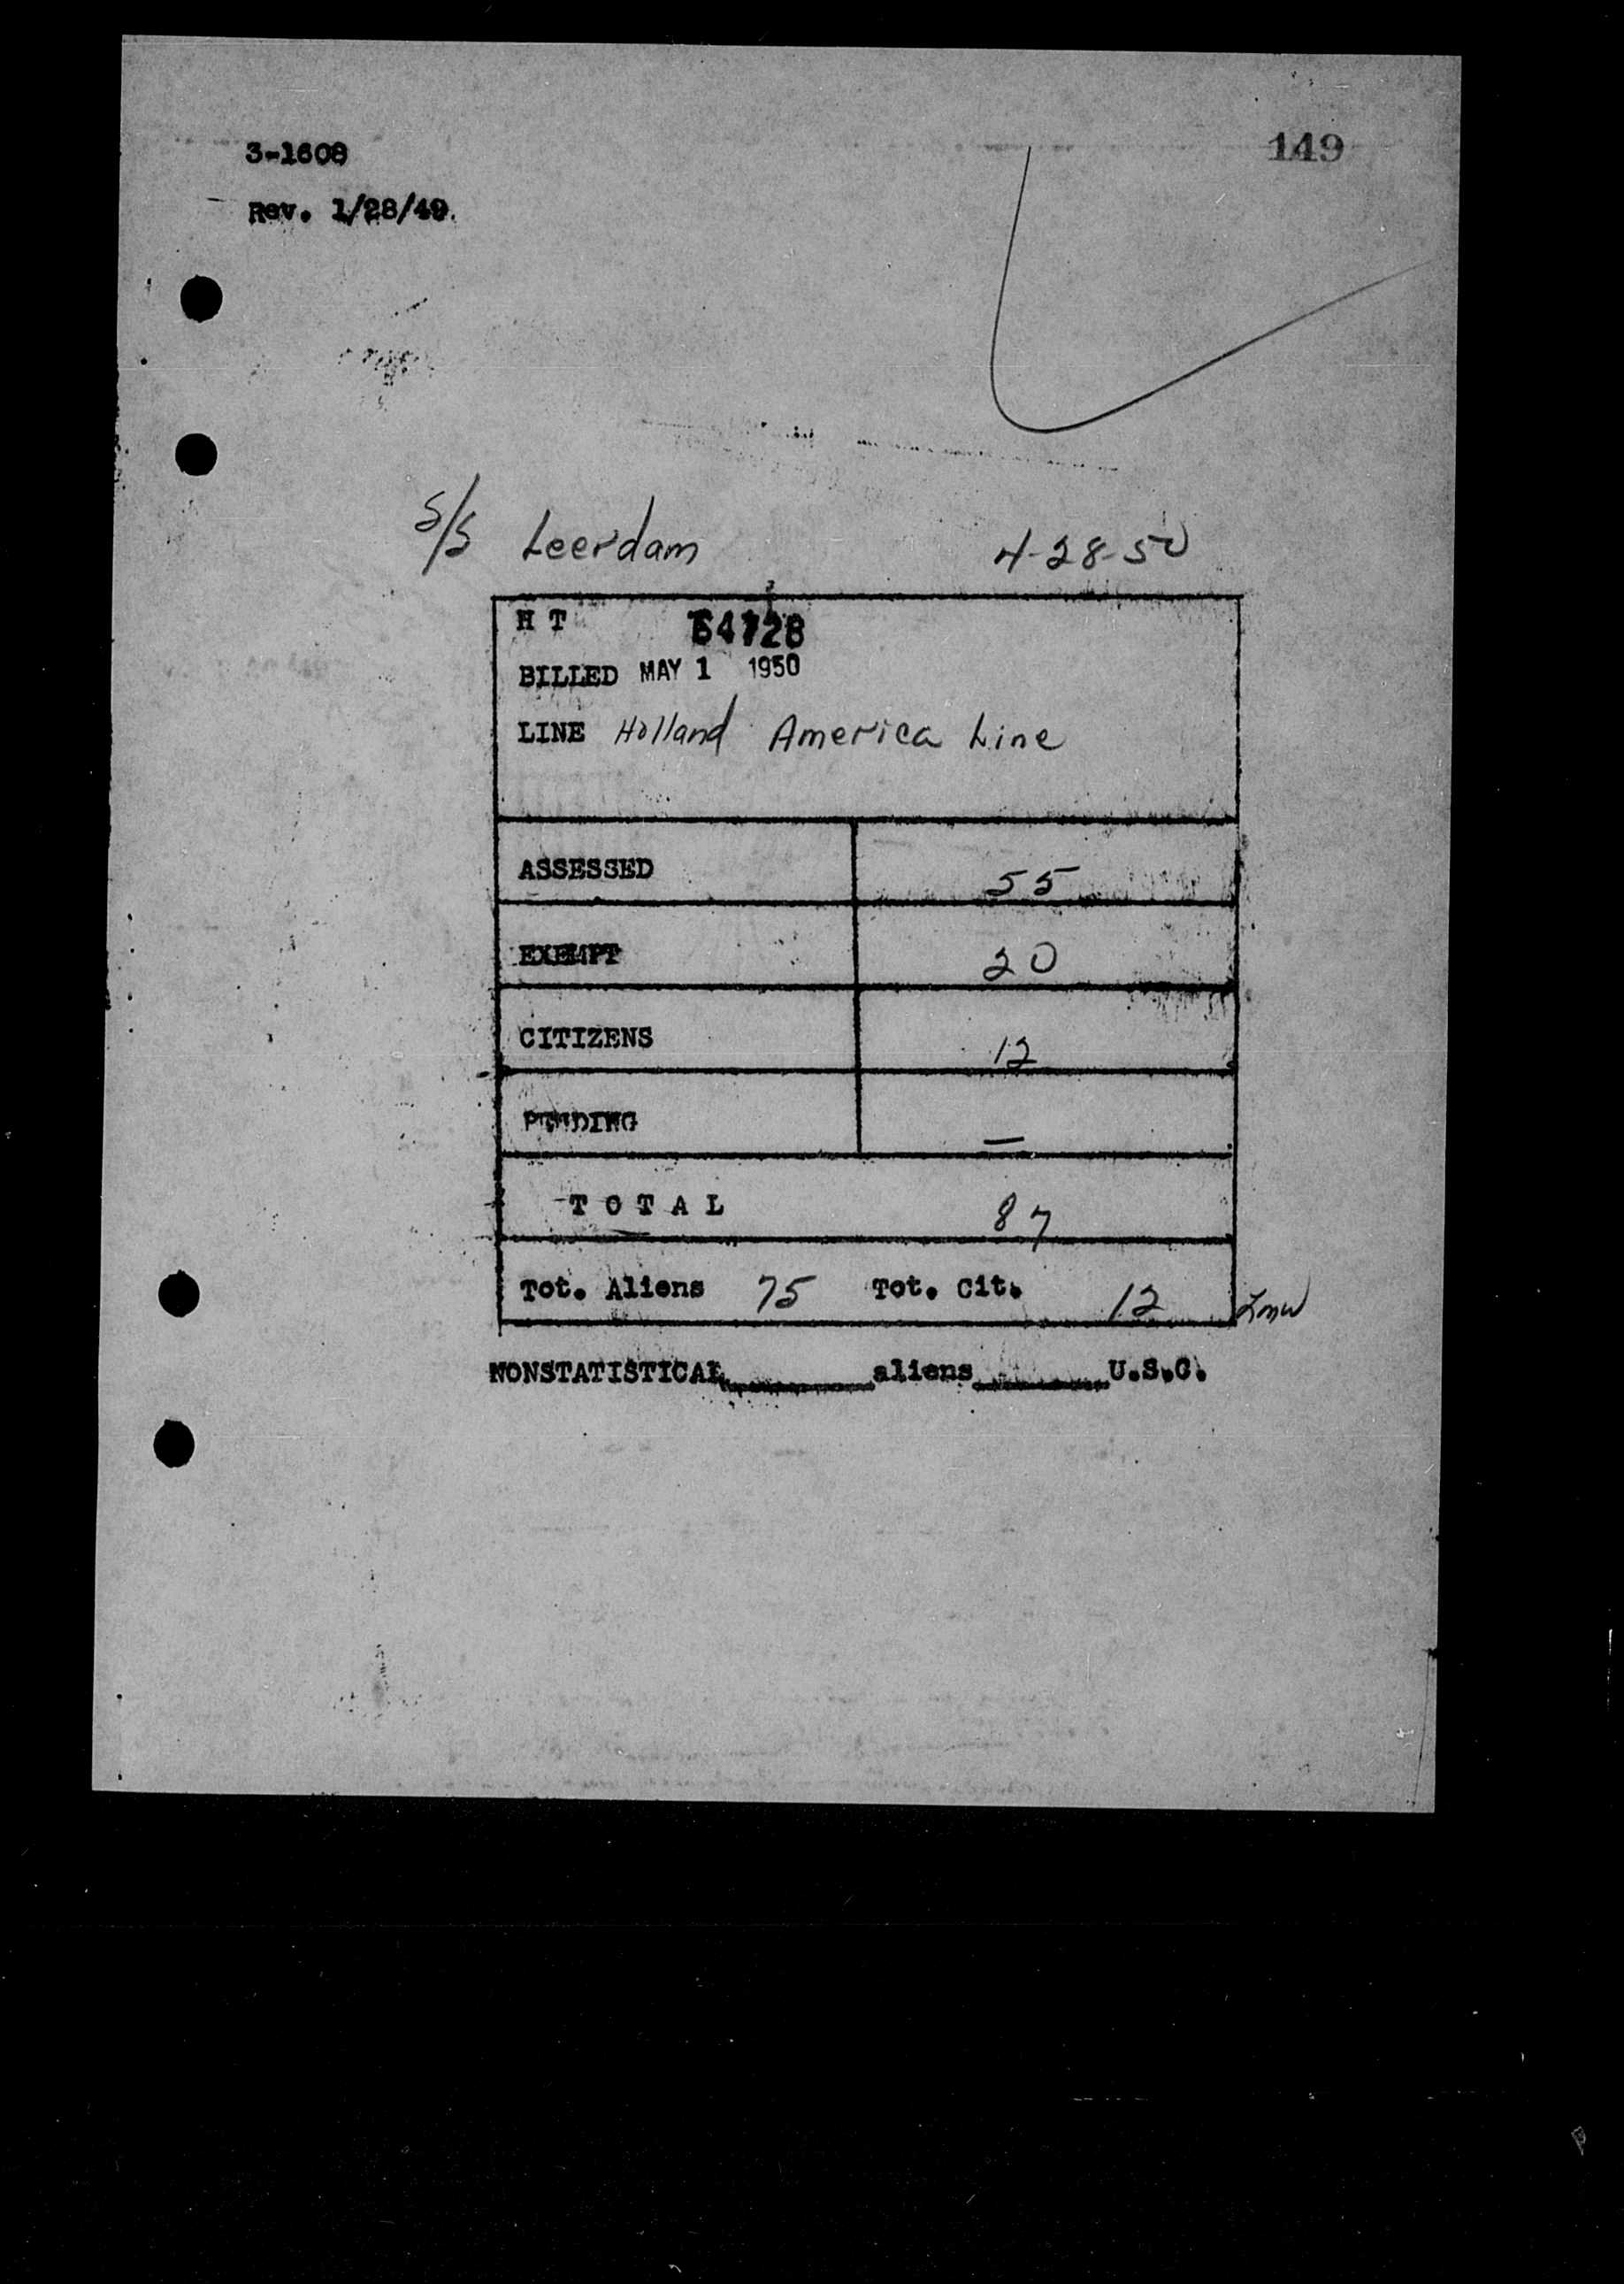 149
3-1608
Rev. 1/28/49.
S/S Leerdam 4-28-50
H T
BILLED MAY 1 1950
LINE Holland America Line
ASSESSED 55
EXEMPT 20
CITIZENS 12
PENDING —
TOTAL 87
Tot. Aliens 75 Tot. Cit. 12
NONSTATISTICAL aliens U.S.C.